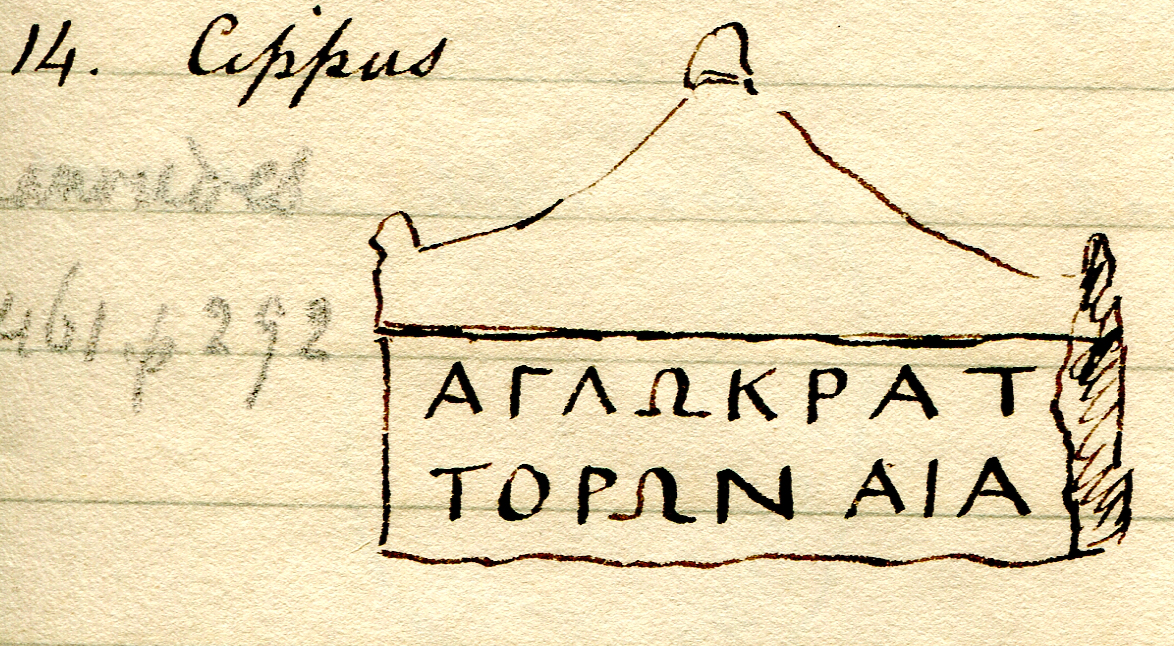 14. Cippus
461 p 292
ΑΓΛΩΚΡΑΤ
ΤΟΡΩΝ ΑΙΑ